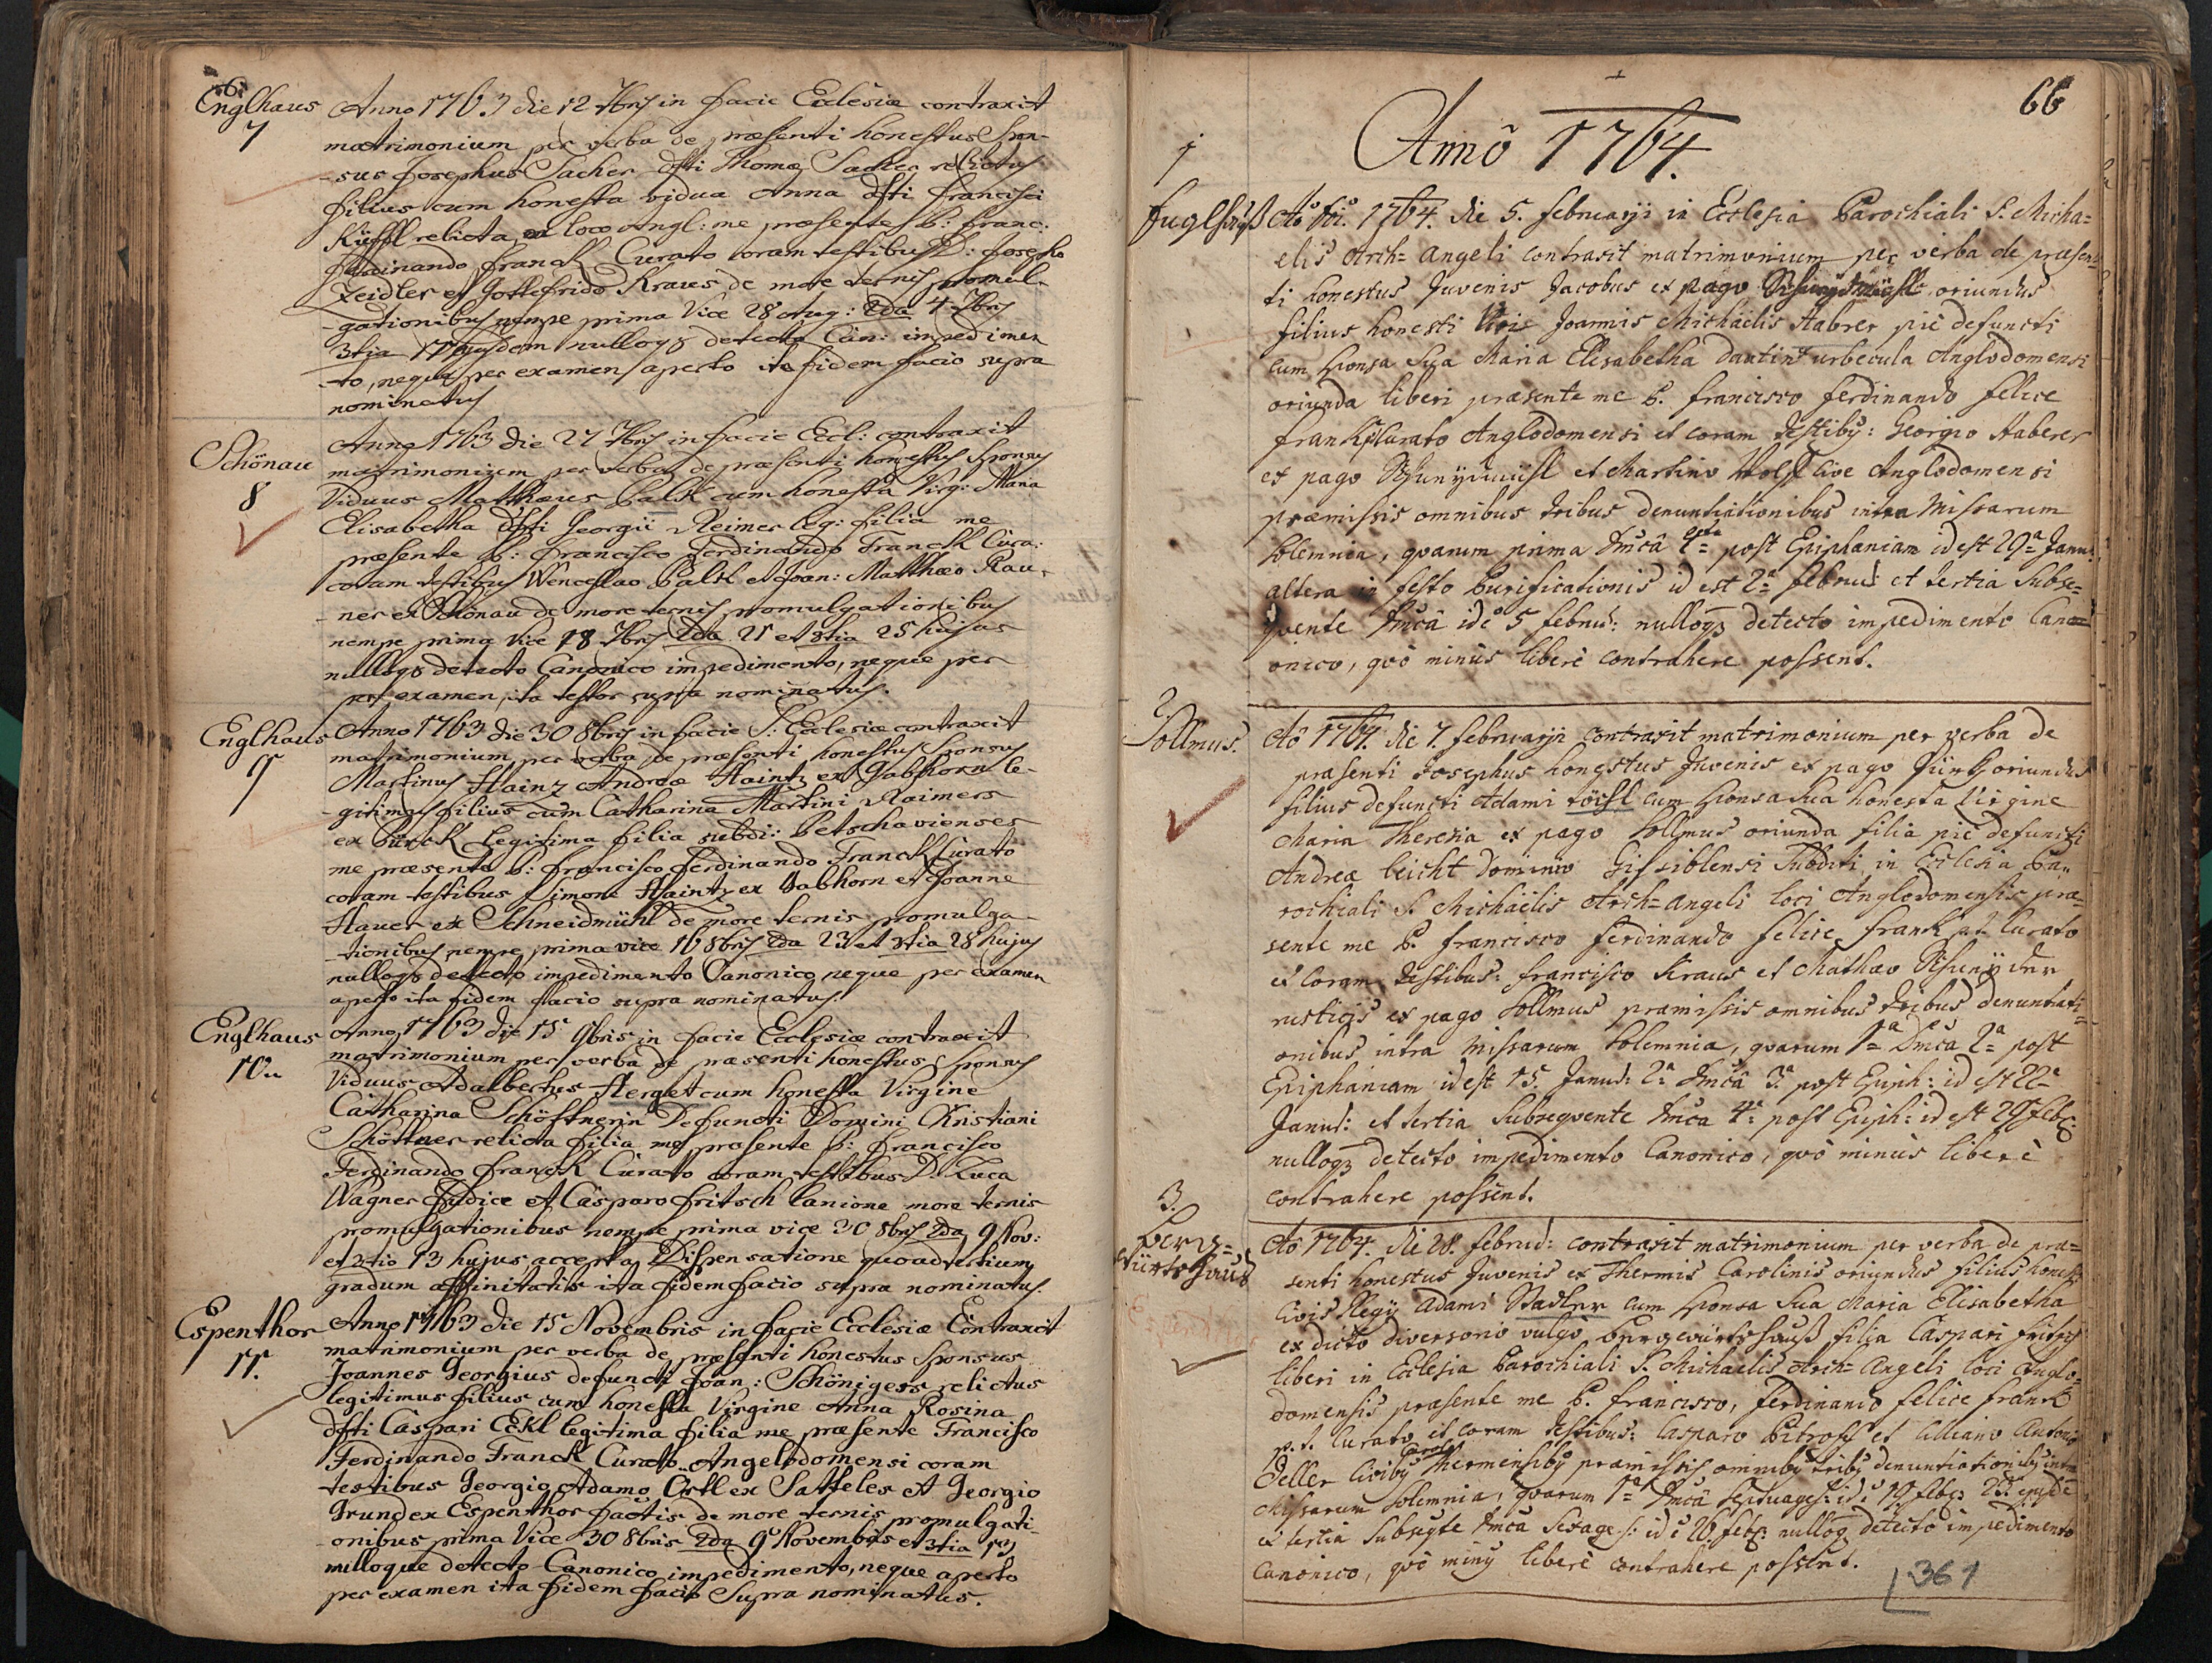 Englhaus
7
Anno 1763 die 12 7bris in facie Ecclesiæ contraxit
matrimonium per verba de præsenti honestus Spon-
-sus Josephus Sacher dfti Thomæ Sacher relictus
filius cum honesta vidua Anna dfti Francisci
relicta ex loco Angl: me præsente P: Franc:
Ferdinando Franck Curato coram testibus D: Josepho
Zeidler et Gottefrido Kraus de more ternis promul-
-gationibus nempe prima Vice 28 Aug: 2da 4 7bris
3tia 11 ejusdem nulloq3 detecto Can: impedimen
-to, neque per examen aperto ita fidem facio supra
nominatus
Schönau
8
Anno 1763 die 27 7bris in facie Eccl: contraxit
matrimonium per verba de præsenti honestus Sponsus
Viduus Matthæus Palk cum honesta Virg: Maria
Elisabetha dfti Georgii Reimer leg: filia me
præsente P: Francisco Ferdinando Franck Cura:
coram testibus Wenceslao Palk et Joan: Matthæo Rau-
-ner ex Schönau de more ternis promulgationibus
nempe prima vice 18 7bris 2da 21 et 3tia 25 hujus
nulloq3 detecto Canonico impedimento, neque per
per examen, ita testor supra nominatus.
Englhaus
9
Anno 1763 die 30 8bris in facie S: Ecclesiæ contraxit
matrimonium per verba de præsenti honestus Sponsus
Martinus Haintz Andreæ Haintz ex Gabhorn le-
-gitimus filius cum Catharina Martini Raimers
ex Bürck legitima filia subdi: Petschavienses
me præsente P: Francisco Ferdinando Franck Curato
coram testibus Simone Haintz ex Gabhorn et Joanne
Haver ex Schneidmühl de more ternis promulga-
-tionibus nempe prima vice 16 8bris 2da 23 et 3tia 28 hujus
nulloq3 detecto impedimento Canonico neque per examen
aperto ita fidem facio supra nominatus.
Englhaus
10
Anno 1763 die 15 9bris in facie Ecclesiæ contraxit
matrimonium per verba de præsenti honestus Sponsus
Viduus Adalbertus Herget cum honesta Virgine
Catharina Schöftnerin Defuncti Domini Christiani
Schöftner relicta filia me præsente P: Francisco
Ferdinando Franck Curato coram testibus D: Luca
Wagner Judice et Casparo Fritsch lanione more ternis
promulgationibus nempe prima vice 30 8bris 2da 9 Nov:
et 3tio 13 hujus accepta Dispensatione quoad tertium
gradum affinitatis ita fidem facio supra nominatus.
Espenthor
11.
Anno 1763 die 15 Novembris in facie Ecclesiæ Contraxit
matrimonium per verba de præsenti honestus Sponsus
Joannes Georgius defuncti Joan: Schönigers relictus
legitimus filius cum honesta Virgine Anna Rosina
dfti Caspari Eckl legitima filia me præsente Francisco
Ferdinando Franck Curato Angelodomensi coram
testibus Georgio Adamo Örtl ex Satteles et Georgio
Grund ex Espenthor factis de more ternis promulgati-
-onibus prima Vice 30 8bris 2da 9 Novembris et 3tia 13
nulloque detecto Canonico impedimento, neque aperto
per examen ita fidem facio Supra nominatus.
66
Annô 1764.
1
Aô Dni. 1764. die 5. februarij in Ecclesia Parochiali S. Micha=
elis Arch= angeli contraxit matrimonium per verba de præsen=
ti honestus Juvenis Jacobus ex pago oriundus
filius honesti Viri Joannis Michaëlis Haberer pie defuncti
cum sponsa sua Maria Elisabetha urbecula Anglodomensi
oriunda liberi præsente me P. Francisco Ferdinando Felice
Frank Curato Anglodomensi et coram testibus: Georgio Haberer
ex pago et Martino Wolf cive Anglodomensi
præmissis omnibus tribus denuntiationibus intra Missarum
solemnia, quarum prima Dmcâ post Epiphaniam id est 29a Janu:
altera in festo Purificationis id est 2a febru: et tertia Subse=
quente Dmcâ id e 5 febru: nulloq3 detecto impedimento Cano=
onico, quò minùs liberè contrahere possent.
2.
Sollmus.
Aô 1764. die 7. februarij contraxit matrimonium per verba de
præsenti Josephus honestus Juvenis ex pago oriundus
filius defuncti Adami cum sponsa sua honesta Virgine
Maria Theresia ex pago Sollmus oriunda filia pie defuncti
Andreæ Leicht Dominio Gissiblensi Subditi in Ecclesia Pa=
rochiali S. Michaëlis Arch=angeli loci Anglodomensis præ=
sente me P. Francisco Ferdinando Felice Frank p.t. Curato
et coram testibus: Francisco Kraus et Mathæo
rusticis ex pago Sollmus præmissis omnibus tribus denuntiati=
onibus intra Missarum solemnia, quarum 1a Dmca 2a post
Epiphaniam id est 15. Janu: 2a Dmcâ 3a post Epiph: id est 22a
Janu: et tertia Subsequente Dmca 4a post Epiph: id est 29 feb:
nulloq3 detecto impedimento Canonico, quò minùs liberè
contrahere possent.
3.
Berg=
Würtshaus
Aô 1764. die 28. febru: contraxit matrimonium per verba de præ=
senti honestus Juvenis ex Thermis Carolinis oriundus filius hones:
civis Regij Adami Stadler cum sponsa sua Maria Elisabetha
ex dicto diversorio vulgò Bergwürtshauß filia Caspari Fritsch
liberi in Ecclesia Parochiali S. Michaëlis Arch= angeli loci Anglo=
domensis præsente me P. Francisco, Ferdinando Felice Frank
p.t. Curato et coram testibus: Casparo et Antonio
Deller civibus Carol: Thermensibus præmissis omnibus tribus denuntiationibus intra
Missarum solemnia, quarum 1a Dmcâ Septuages: id e 19 feb:
et tertia Subsqte Dmca Sexages: id e 26 feb: nulloq3 detecto impedimento
Canonico, quò minus liberè contrahere possent.
361